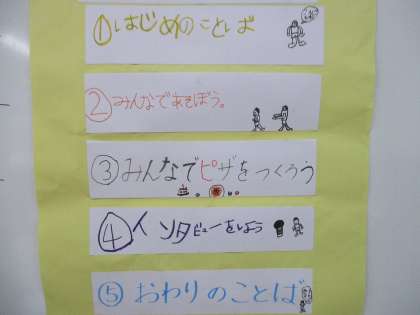 ①はじめのことば
②みんなであそぼう。
③みんなでピザをつくろう
④インタビューをしよう
⑤おわりのことば